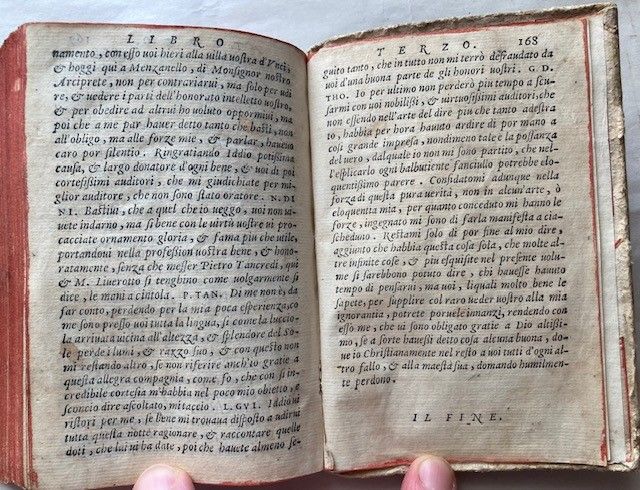 LIBRO
namento, con esso uoi hieri alla uilla uostra d'Vnci,
& hoggi qui a Menzanello, di Monsignor nostro
Arciprete, non per contrariarui, ma solo per udi
re, & uedere i parti dell'honorato intelletto uostro,
& per obedire ad altrui ho uoluto oppormiui, ma
poi che a me par hauer detto tanto che basti, non
all'obligo, ma alle forze mie, & parlar, haueuo
caro por silentio. Ringratiando Iddio potissima
causa, & largo donatore d'ogni bene, & uoi di poi
cortesissimi auditori, che mi giudichiate per mi-
glior auditore, che non sono stato oratore. N. DI
NI. Bastiui, che a quel che io ueggo, uoi non ua-
uete indarno, ma si bene con le uirtù uostre ui pro
cacciate ornamento gloria, & fama piu che utile,
portandoui nella profession uostra bene, & hono-
ratamente, senza che messer Pietro Tancredi, qui
& M. Liuerotto si tenghino come uolgarmente si
dice, le mani a cintola. P. TAN. Di me non è, da
far conto, perdendo per la mia poca esperienza, co
me sono presso uoi tutta la lingua, si come la luccio-
la arriuata uicina all'altezza, & splendore del So-
le perde i lumi, & razzo suo, & con questo non
mi restando altro, se non riferire anch'io gratie a
questa allegra compagnia, come, fo, che con si in-
credibile cortesia m'habbia nel poco mio obietto, e
sconcio dire ascoltato, mi taccio. L. GVI. Iddio ui
ristori per me, se bene mi trouaua disposto a udirui
tutta questa notte ragionare, & raccontare quelle
doti, che lui ui ha date, poi che hauete almeno se-
TERZO. 168
guito tanto, che in tutto non mi terrò defraudato da
uoi d'una buona parte de gli honori uostri. G. D.
THO. Io per ultimo non perderò piu tempo a scu-
sarmi con uoi nobilissi, & uirtuosissimi auditori, che
non essendo nell'arte del dire piu che tanto adestra
to, habbia per hora hauuto ardire di por mano a
cosi grande impresa, nondimeno tale è la possanza
del uero, dal quale io non mi sono partito, che nel-
l'esplicarlo ogni balbutiente fanciullo potrebbe elo-
quentissimo parere. Confidatomi adunque nella
forza di questa pura uerità, non in alcun'arte, ò
eloquentia mia, per quanto conceduto mi hanno le
forze, ingegnato mi sono di farla manifesta a cia-
scheduno. Restami solo di por fine al mio dire,
aggiunto che habbia questa cosa sola, che molte al-
tre infinite cose, & piu esquisite nel presente uolu-
me si sarebbono potuto dire, chi hauesse hauuto
tempo di pensarui, ma uoi, i quali molto bene le
sapete, per supplire col raro ueder uostro alla mia
ignorantia, potrete poruele innanzi, rendendo con
esso me, che ui sono obligato gratie a Dio altissi-
mo, se a sorte hauessi detto cosa alcuna buona, do-
ue io Christianamente nel resto a uoi tutti d'ogni al-
tro fallo, & alla maestà sua, domando humilmen-
te perdono.
IL FINE.